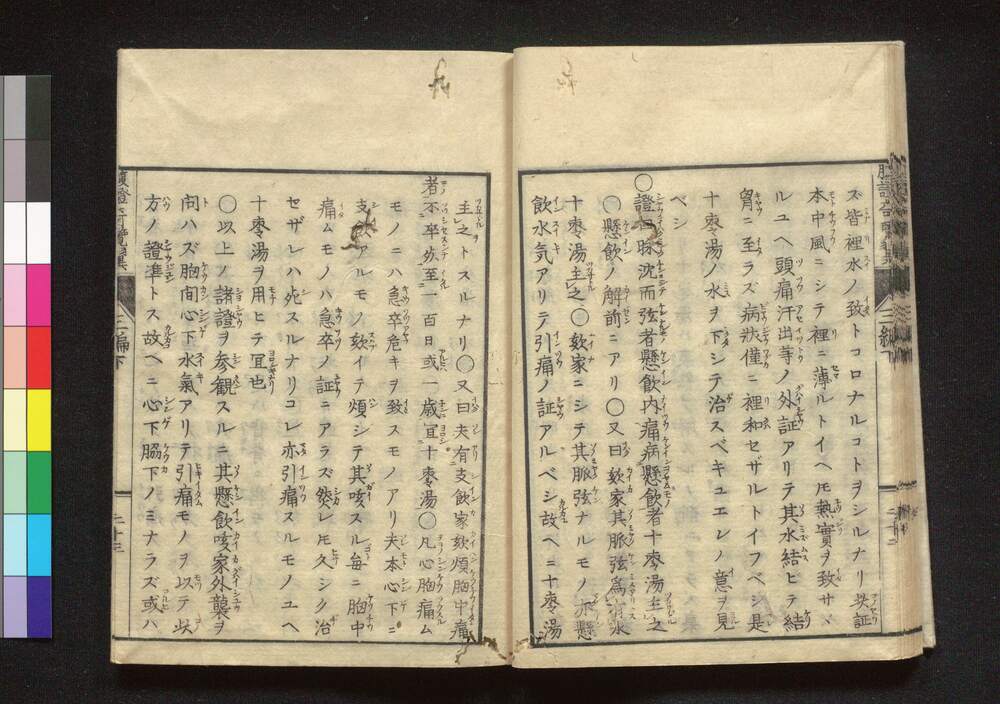 ズ皆裡水ノ致トコロナルコトヲシルナリ此証
本中風ニシテ裡ニ薄ルトイヘ𪜈熱實ヲ致サヾ
ルユヘ頭痛汗出等ノ外証アリテ其水結ヒテ結
胷ニ至ラズ病狀僅ニ裡和セザルトイフベシ是
十棗湯ノ水ヲ下シテ治スベキユエンノ意ヲ見
ベシ
○證曰脉沈而弦者懸飲内痛病懸飲者十棗湯主之
○懸飲ノ解前ニアリ○又曰欬家其脈弦爲有水
十棗湯主之○欬家ニシテ其脈弦ナルモノ亦懸
飲水気アリテ引痛ノ証アルベシ故ヘニ十棗湯
主之トスルナリ○又曰夫有支飲家欬煩胸中痛
者不卒死至一百日或一歳宜十棗湯○凡心胸痛ム
モノニハ急卒危キヲ致スモノアリ夫本心下ニ
支飲アルモノ欬イテ煩シテ其咳スル毎ニ胸中
痛ムモノハ急卒ノ証ニアラズ然レ𪜈久シク治
セザレハ死スルナリコレ亦引痛スルモノユヘ
十棗湯ヲ用ヒテ宜也
○以上ノ諸證ヲ参観スルニ其懸飲咳家外襲ヲ
問ハズ胸間心下水氣アリテ引痛モノヲ以テ此
方ノ證準トス故ヘニ心下脇下ノミナラズ或ハ
三編下
二十三